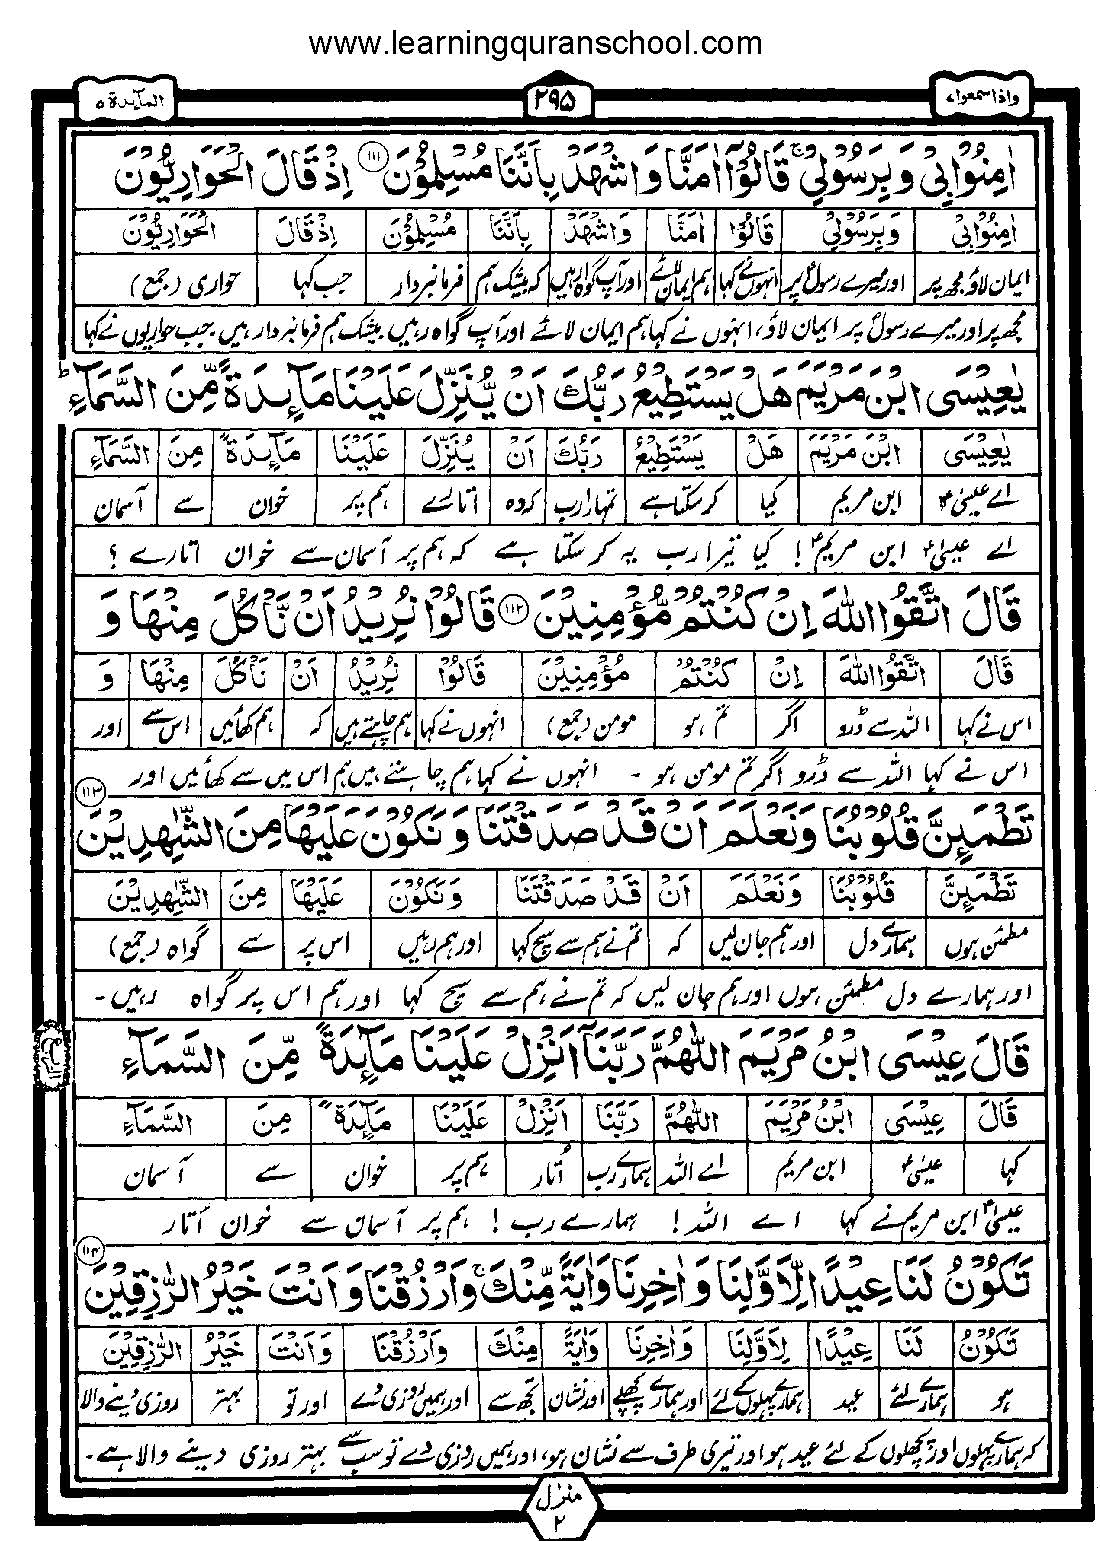 www.learningquranschool.com
واذاسمعوا، ۲۹۵ المآىِٕدة ۵
اٰمِنُوْا بِیْ وَ بِرَسُوْلِیْ ۚ قَالُوْۤا اٰمَنَّا وَ اشْهَدْ بِاَنَّنَا مُسْلِمُوْنَ ۱۱۱ اِذْ قَالَ الْحَوَارِیُّوْنَ
اٰمِنُوْا بِیْ وَ بِرَسُوْلِیْ قَالُوْا اٰمَنَّا وَ اشْهَدْ بِاَنَّنَا مُسْلِمُوْنَ اِذْ قَالَ الْحَوَارِیُّوْنَ
ایمان لاؤ مجھ پر اور میرے رسولؐ پر انہوں نے کہا ہم ایمان لائے اور آپ گواہ رہیں کہ بیشک ہم فرمانبردار جب کہا حواری (جمع)
مجھ پر اور میرے رسولؐ پر ایمان لاؤ، انہوں نے کہا ہم ایمان لائے اور آپ گواہ رہیں بیشک ہم فرمانبردار ہیں۔ جب حواریوں نے کہا
یٰعِیْسَی ابْنَ مَرْیَمَ هَلْ یَسْتَطِیْعُ رَبُّكَ اَنْ یُّنَزِّلَ عَلَیْنَا مَآىِٕدَةً مِّنَ السَّمَآءِ ؕ
یٰعِیْسَی ابْنَ مَرْیَمَ هَلْ یَسْتَطِیْعُ رَبُّكَ اَنْ یُنَزِّلَ عَلَیْنَا مَآىِٕدَةً مِنَ السَّمَآءِ
اے عیسیٰؑ ابن مریم کیا کر سکتا ہے تمہارا رب کہ وہ اتارے ہم پر خوان سے آسمان
اے عیسیٰؑ ابن مریمؑ! کیا تیرا رب یہ کر سکتا ہے کہ ہم پر آسمان سے خوان اتارے ؟
قَالَ اتَّقُوا اللّٰهَ اِنْ كُنْتُمْ مُّؤْمِنِیْنَ ۱۱۲ قَالُوْا نُرِیْدُ اَنْ نَّاْكُلَ مِنْهَا وَ
قَالَ اتَّقُوا اللّٰهَ اِنْ كُنْتُمْ مُؤْمِنِیْنَ قَالُوْا نُرِیْدُ اَنْ نَاْكُلَ مِنْهَا وَ
اس نے کہا اللہ سے ڈرو اگر تم ہو مومن (جمع) انہوں نے کہا ہم چاہتے ہیں کہ ہم کھائیں اس سے اور
اس نے کہا اللہ سے ڈرو اگر تم مومن ہو ۔ انہوں نے کہا ہم چاہتے ہیں ہم اس میں سے کھائیں اور
تَطْمَىِٕنَّ قُلُوْبُنَا وَ نَعْلَمَ اَنْ قَدْ صَدَقْتَنَا وَ نَكُوْنَ عَلَیْهَا مِنَ الشّٰهِدِیْنَ ۱۱۳
تَطْمَىِٕنَّ قُلُوْبُنَا وَ نَعْلَمَ اَنْ قَدْ صَدَقْتَنَا وَ نَكُوْنَ عَلَیْهَا مِنَ الشّٰهِدِیْنَ
مطمئن ہوں ہمارے دل اور ہم جان لیں کہ تم نے ہم سے سچ کہا اور ہم رہیں اس پر سے گواہ (جمع)
اور ہمارے دل مطمئن ہوں اور ہم جان لیں کہ تم نے ہم سے سچ کہا اور ہم اس پر گواہ رہیں۔
قَالَ عِیْسَی ابْنُ مَرْیَمَ اللّٰهُمَّ رَبَّنَاۤ اَنْزِلْ عَلَیْنَا مَآىِٕدَةً مِّنَ السَّمَآءِ
قَالَ عِیْسَی ابْنُ مَرْیَمَ اللّٰهُمَّ رَبَّنَا اَنْزِلْ عَلَیْنَا مَآىِٕدَةً مِنَ السَّمَآءِ
کہا عیسیٰؑ ابن مریم اے اللہ ہمارے رب اُتار ہم پر خوان سے آسمان
عیسیٰؑ ابن مریم نے کہا اے اللہ! ہمارے رب! ہم پر آسمان سے خوان اُتار
تَكُوْنُ لَنَا عِیْدًا لِّاَوَّلِنَا وَ اٰخِرِنَا وَ اٰیَةً مِّنْكَ ۚ وَ ارْزُقْنَا وَ اَنْتَ خَیْرُ الرّٰزِقِیْنَ ۱۱۴
تَكُوْنُ لَنَا عِیْدًا لِاَوَّلِنَا وَ اٰخِرِنَا وَ اٰیَةً مِنْكَ وَ ارْزُقْنَا وَ اَنْتَ خَیْرُ الرّٰزِقِیْنَ
ہو ہمارے لئے عید ہمارے پہلوں کے لئے اور ہمارے پچھلے اور نشان تجھ سے اور ہمیں روزی دے اور تو بہتر روزی دینے والا
کہ ہمارے پہلوں اور پچھلوں کے لئے عید ہو اور تیری طرف سے نشان ہو، اور ہمیں روزی دے تو سب سے بہتر روزی دینے والا ہے۔
منزل
۲